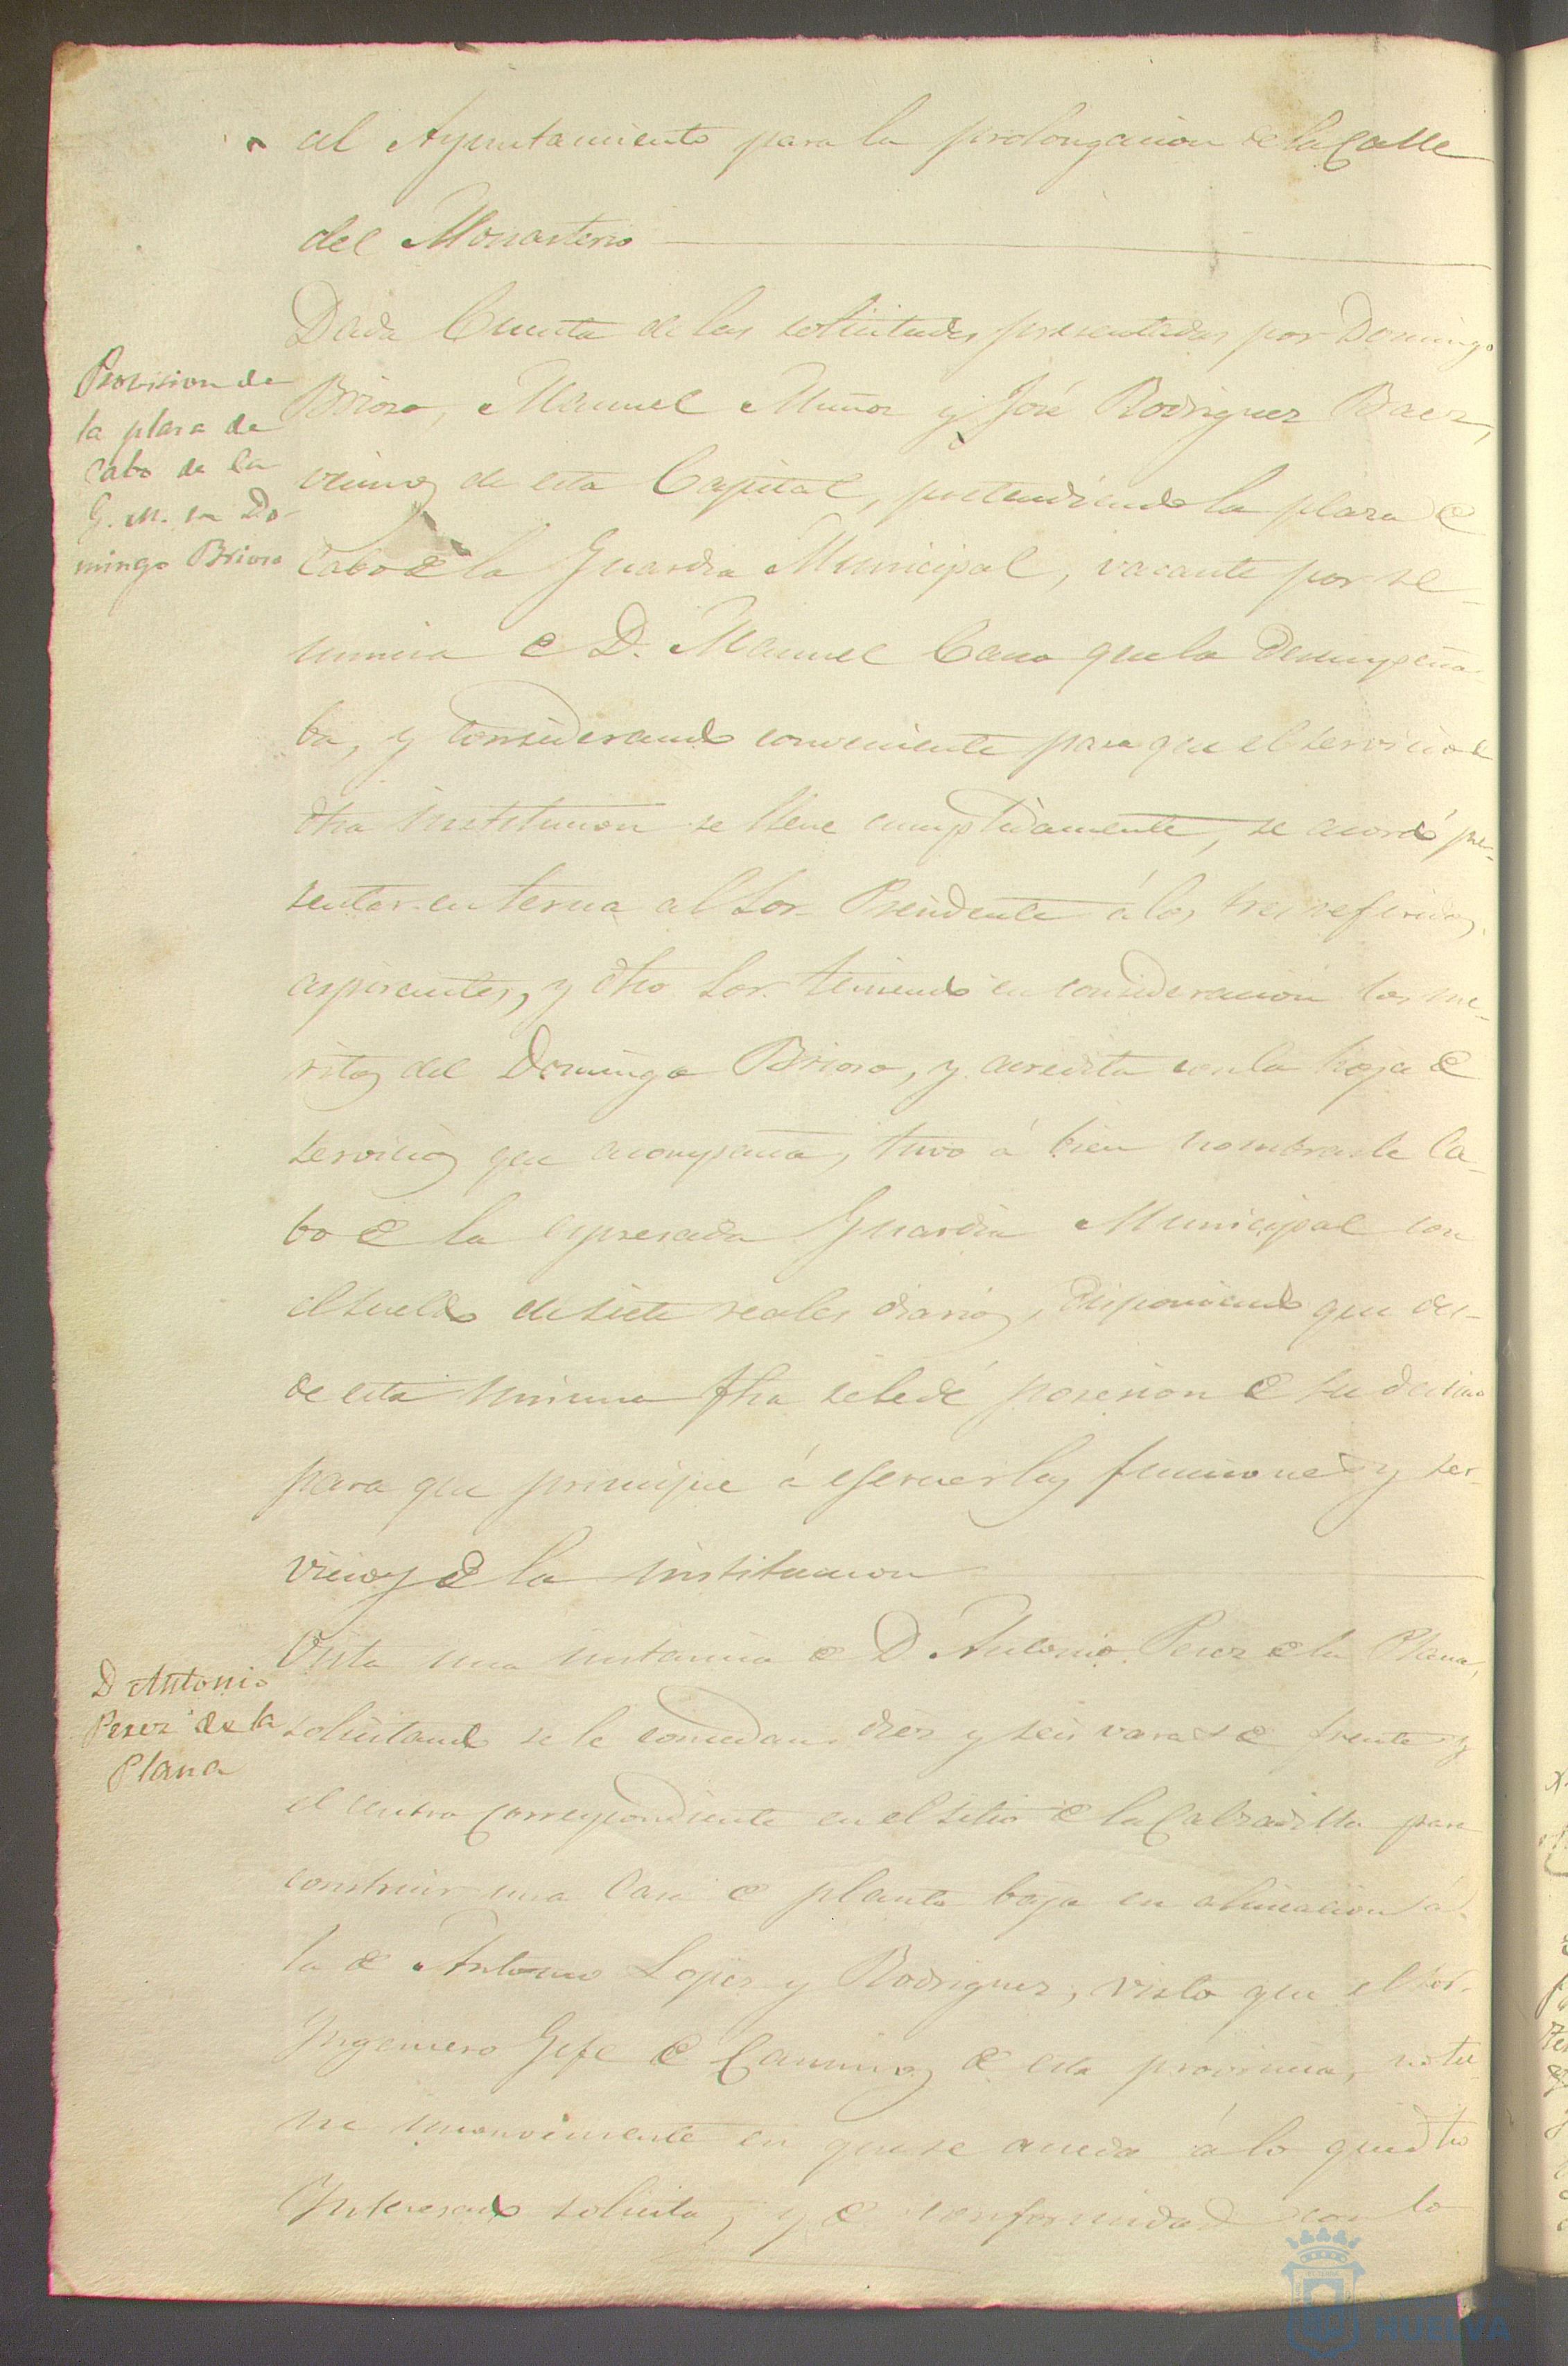 al Ayuntamiento para la prolongacion de la Calle
del Monasterio
Provision de
la plasa de
Cabo de la
G. M. en Do-
mingo Brioso
Dada Cuenta de las solicitudes presentadas por Domingo
Brioso, Manuel Muñoz y José Rodriguez Baez,
vecinos de esta Capital, pretendiendo la plaza de
Cabo de la Guardia Municipal, vacante por re-
nuncia de D. Manuel Cano que la desempeña-
ba, y considerando conveniente para que el servicio de
dha institucion se llene cumplidamente, se acordó pre-
sentar en terna al Sor. Presidente á los tres referidos
aspirantes, y dho Sor. teniendo en consideracion los me-
ritos del Domingo Brioso, y acredita con la hoja de
servicios que acompaña, tuvo á bien nombrarle Ca-
bo de la espresada Guardia Municipal con
el sueldo de siete reales diarios, disponiendo que des-
de esta misma fha se le dé posesion de su destino
para que principie á egercer las funciones y ser-
vicios de la institucion
D Antonio
Perez de la
Plana
Vista una instancia de D. Antonio Perez de la Plana,
solicitando se le concedan diez y seis varas de frente y
el centro correspondiente en el sitio de la Calzadilla para
construir una Casa de planta baja en alineacion á
la de Antonio Lopez y Rodriguez, visto que el Sor.
Ingeniero Gefe de Caminos de esta provincia, no tie-
ne inconveniente en que se acceda á lo que dho
Interesado solicita, y de conformidad con lo
HUELVA